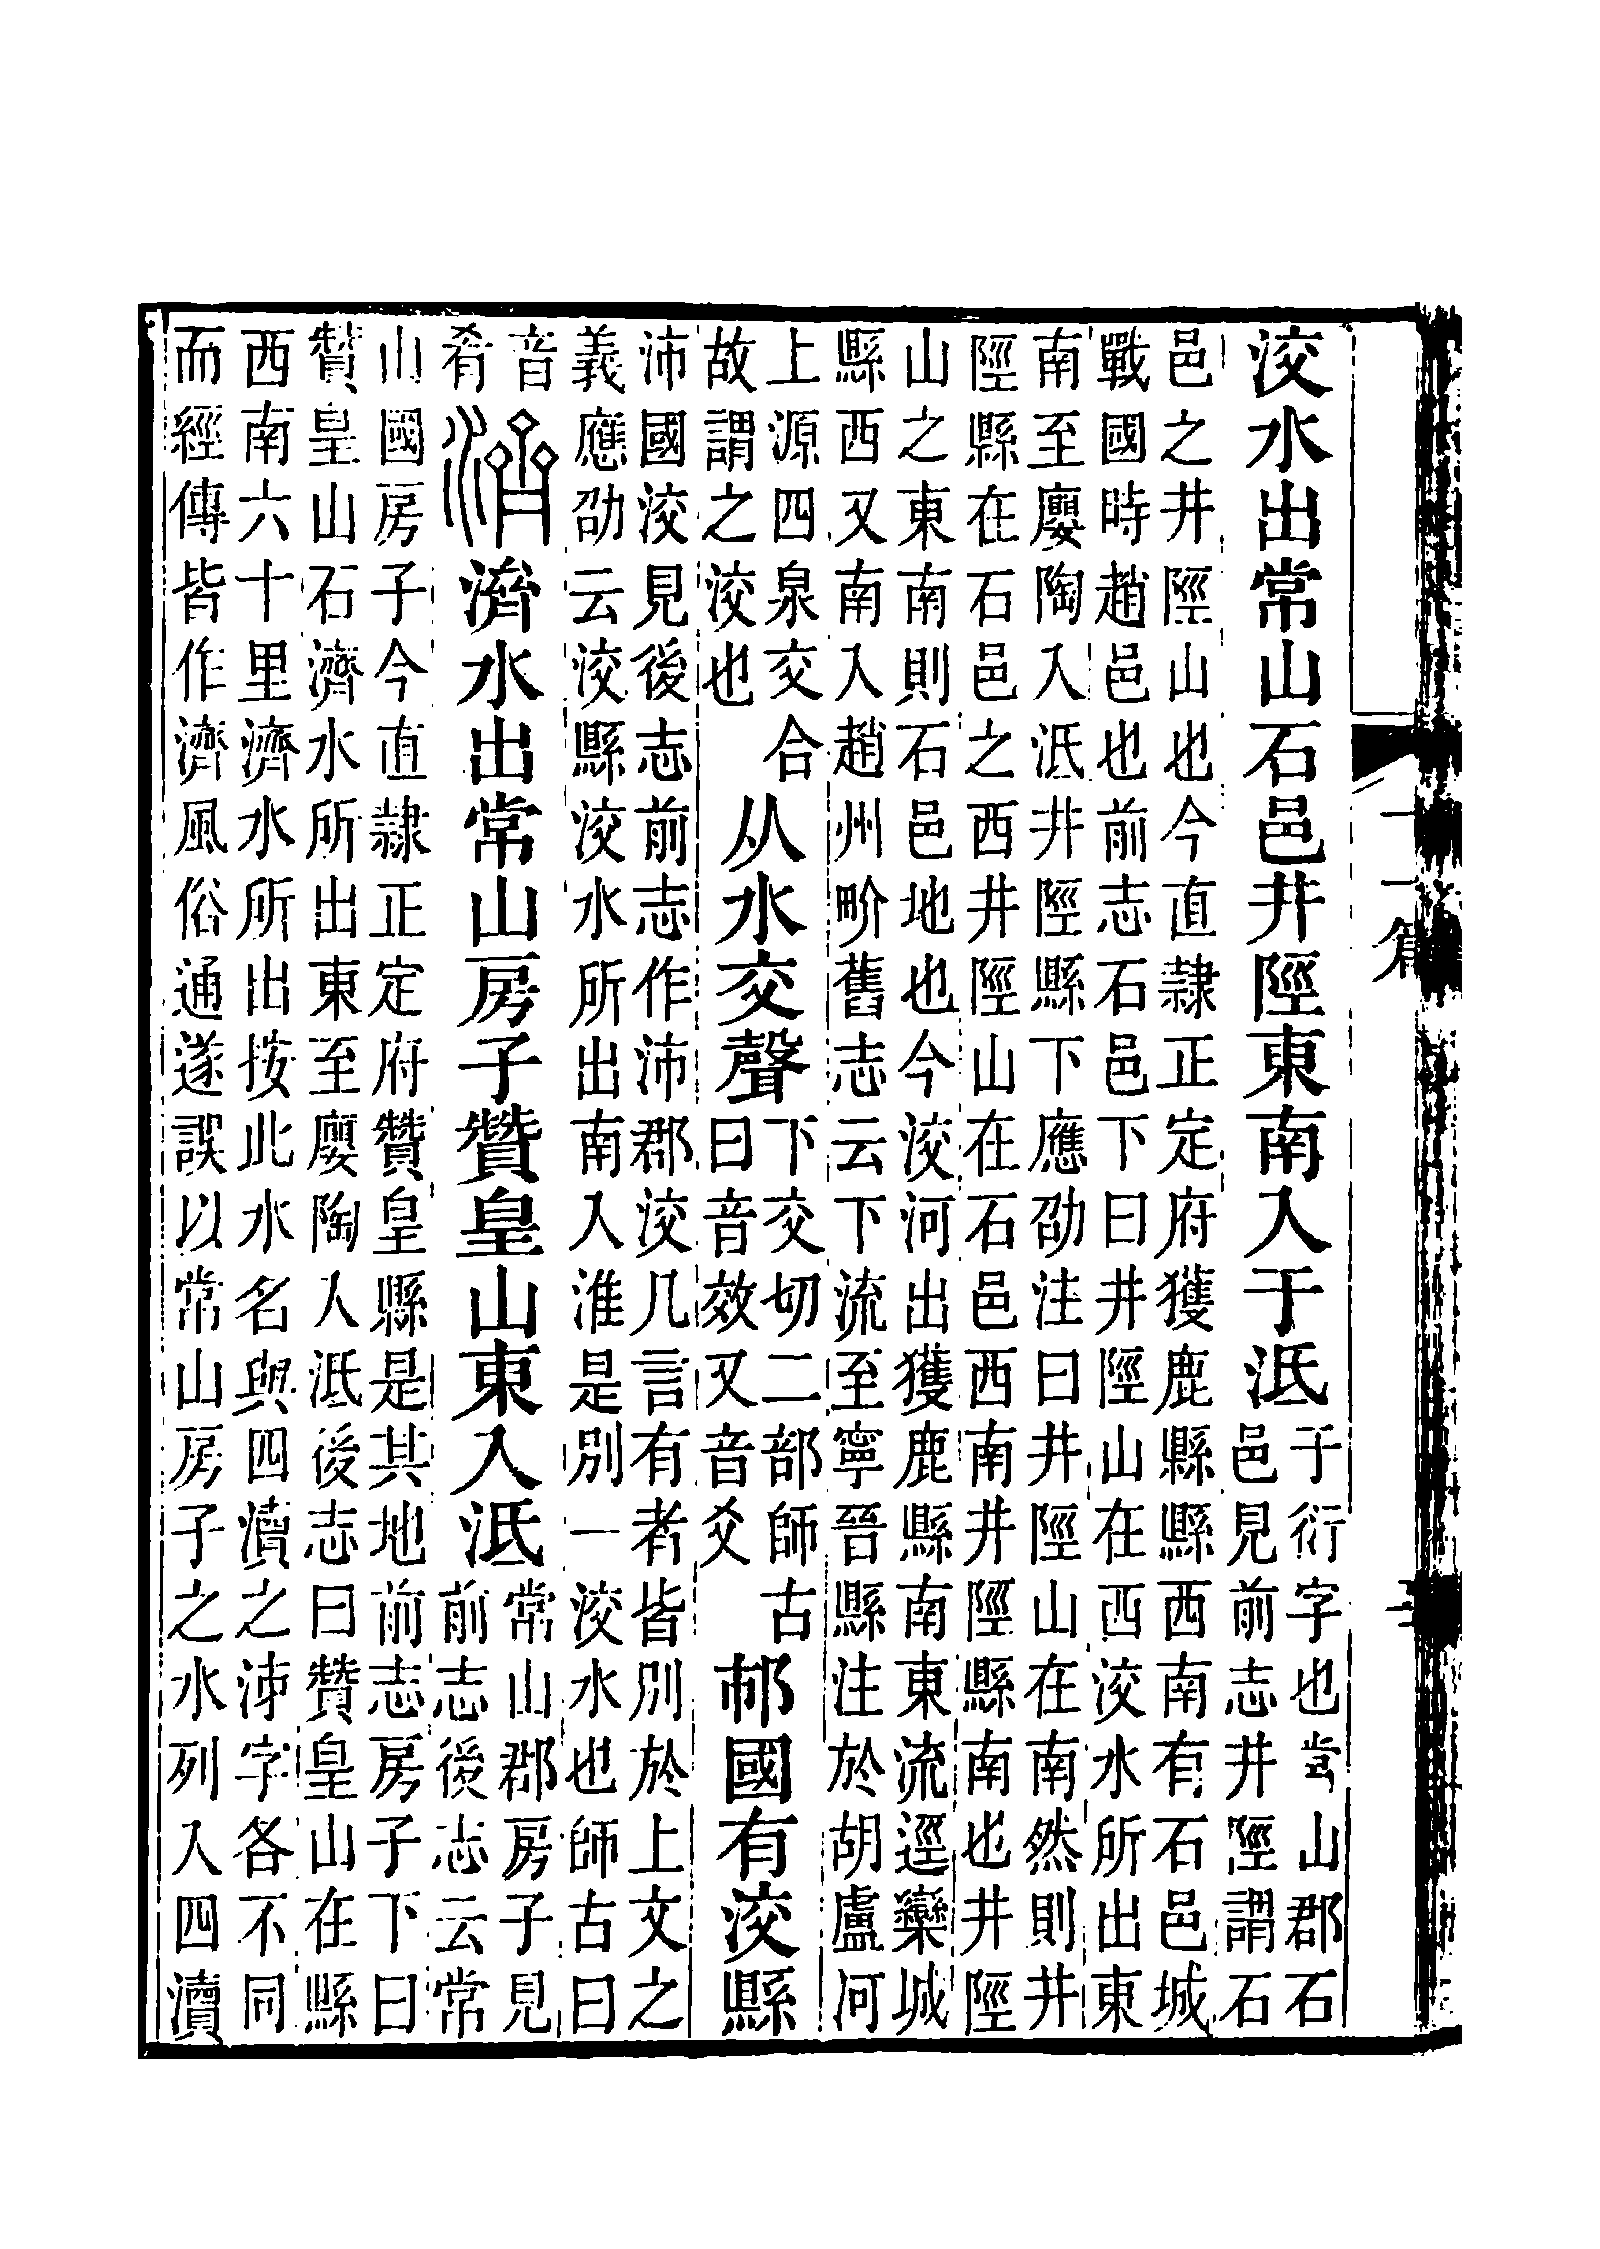 洨水出常山石邑井陘東南入于泜
于衍字也常山郡石
邑見前志井陘謂石
邑之井陘山也今直隸正定府獲鹿縣縣西南有石邑城
戰國時趙邑也前志石邑下曰井陘山在西洨水所出東
南至廮陶入泜井陘縣下應劭注曰井陘山在南然則井
陘縣在石邑之西井陘山在石邑西南井陘縣南也井陘
山之東南則石邑地也今洨河出獲鹿縣南東流逕欒城
縣西又南入趙州畍舊志云下流至寧晉縣注於胡盧河
上源四泉交合
故謂之洨也
从水交聲
下交切二部師古
曰音效又音爻
䢌國有洨縣
沛國洨見後志前志作沛郡洨几言有者皆別於上文之
義應劭云洨縣洨水所出南入淮是別一洨水也師古曰
音
肴
濟
濟水出常山房子贊皇山東入泜
常山郡房子見
前志後志云常
山國房子今直隸正定府贊皇縣是其地前志房子下曰
贊皇山石濟水所出東至廮陶入泜後志曰贊皇山在縣
西南六十里濟水所出按此水名與四瀆之泲字各不同
而經傳皆作濟風俗通遂誤以常山房子之水列入四瀆